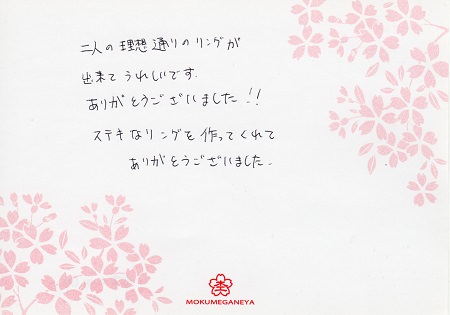 二人の理想通りのリングが
出来てうれしいです.
ありがとうございました!!
ステキなリングを作ってくれて
ありがとうございました.
MOKUMEGANEYA